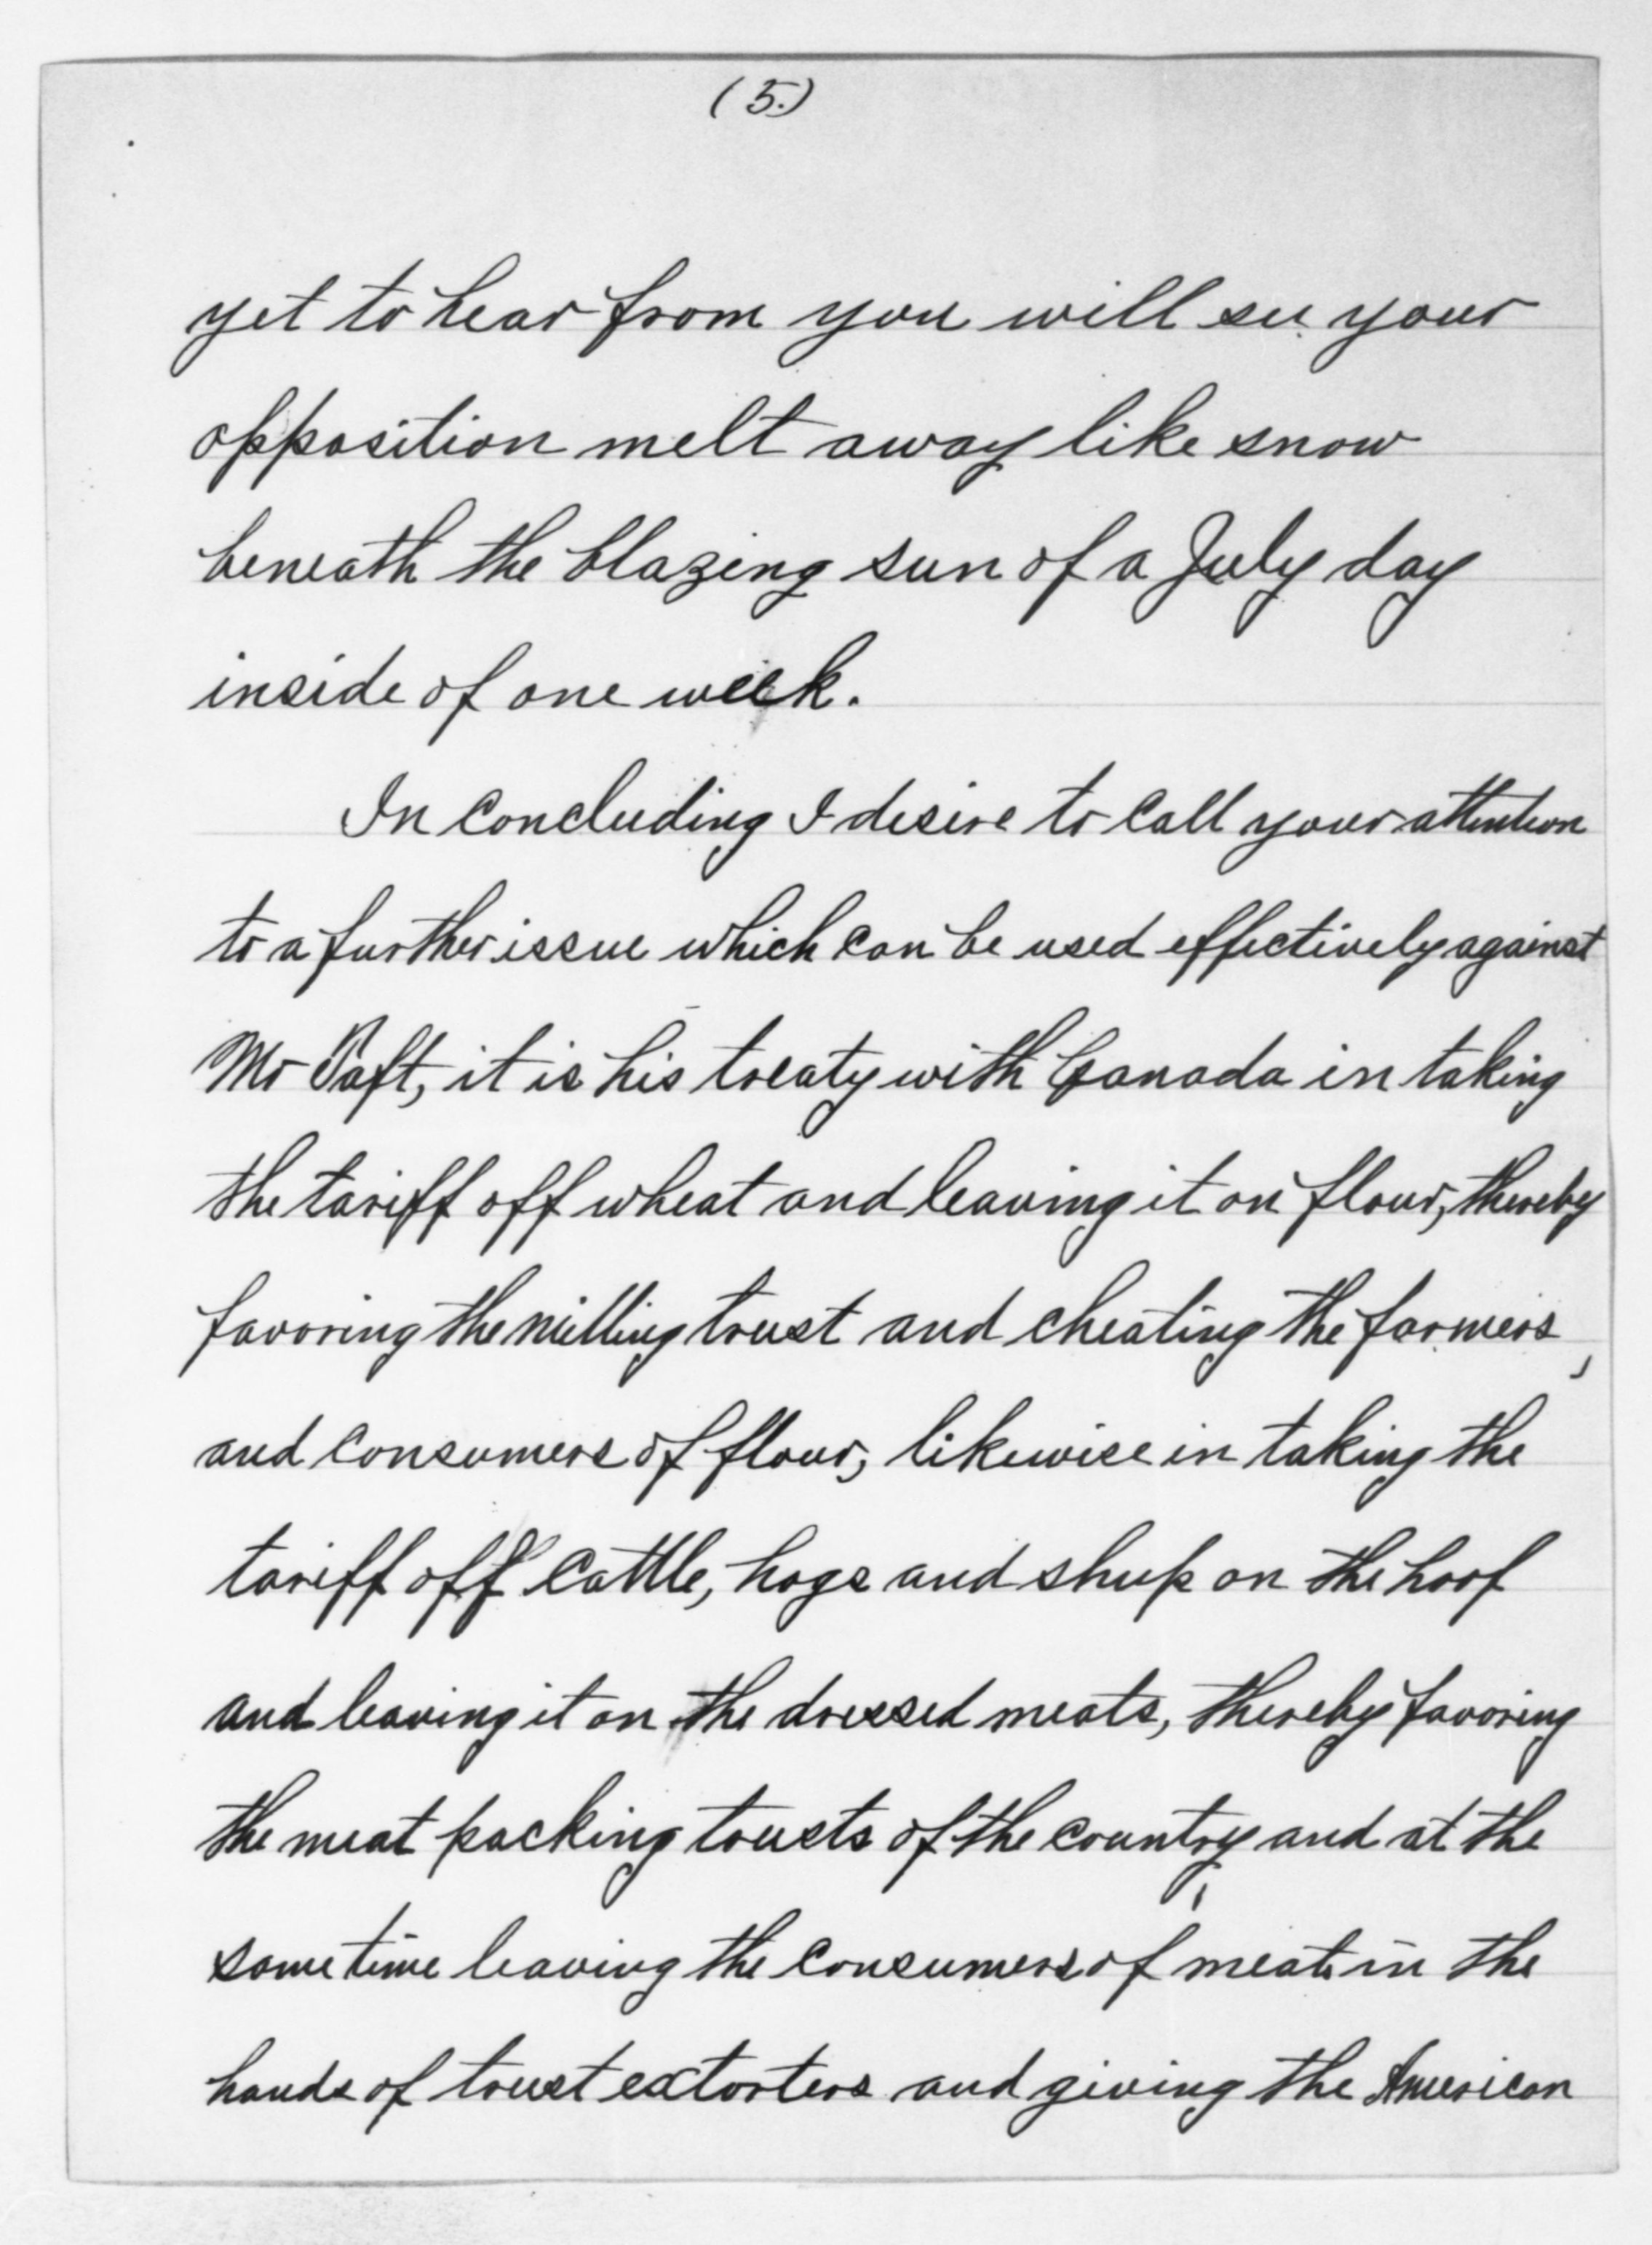 (5.)
yet to hear from you will see your
opposition melt away like snow
beneath the blazing sun of a July day
inside of one week.
In concluding I desire to call your attention
to a further issue which can be used effectively against
Mr Taft, it is his treaty with Canada in taking
the tariff off wheat and leaving it on flour, thereby
favoring the milling trust and cheating the farmers,
and consumers of flour, likewise in taking the
tariff off cattle, hogs and sheep on the hoof
and leaving it on the dressed meats, thereby favoring
the meat packing trusts of the country, and at the
same time leaving the consumers of meats in the
hands of trust extorters and giving the American